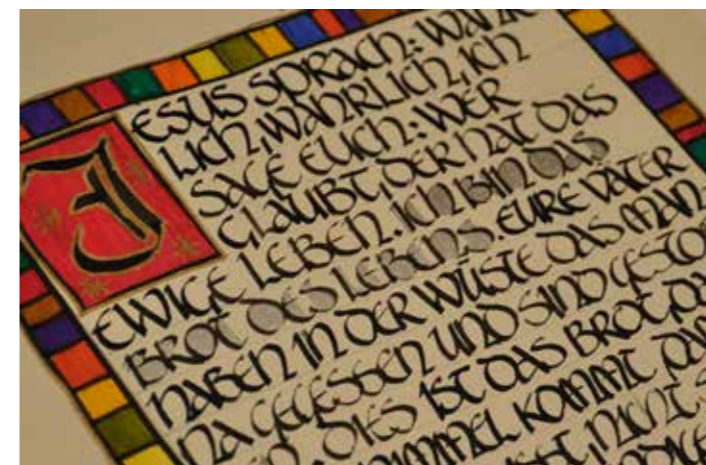 JESUS SPRACH: WAHR
LICH, WAHRLICH, ICH
SAGE EUCH: WER
GLAUBT, DER HAT DAS
EWIGE LEBEN. ICH BIN DAS
BROT DES LEBENS. EURE VÄTER
HABEN IN DER WÜSTE DAS MAN-
NA GEGESSEN UND SIND GESTOR
DIES IST DAS BROT, DA
KOMMT, DA
NICHT